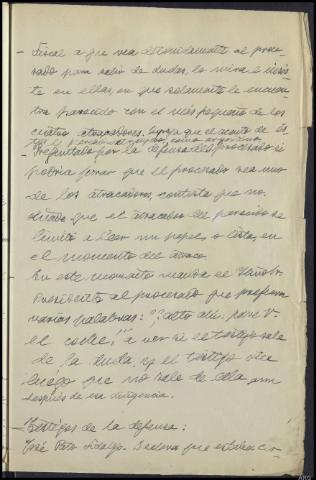 - Fiscal a que vea detenidamente al proce-
sado para salir de dudas, lo mira e insis-
te en ellas, en que solamente le encuen-
tra parecido con el más pequeño de los
cuatro atracadores. Agrega que el acento de és-
te
- Preguntado por la defensa del procesado si
podría jurar que el procesado sea uno
de los atracadores, contesta que no.
que el atracador del parecido se
limitó a leer un papel o lista, en
el momento del atraco.
En este momento requiere el Señor
Presidente al procesado que pronuncie
varias palabras: "¡alto ahí, pare V.
el coche!" a ver si el testigo sale
de la duda, y el testigo dice
luego que no sale de ella aun
después de esa diligencia.
- Testigos de la defensa:
José Hidalgo. Declara que estaba